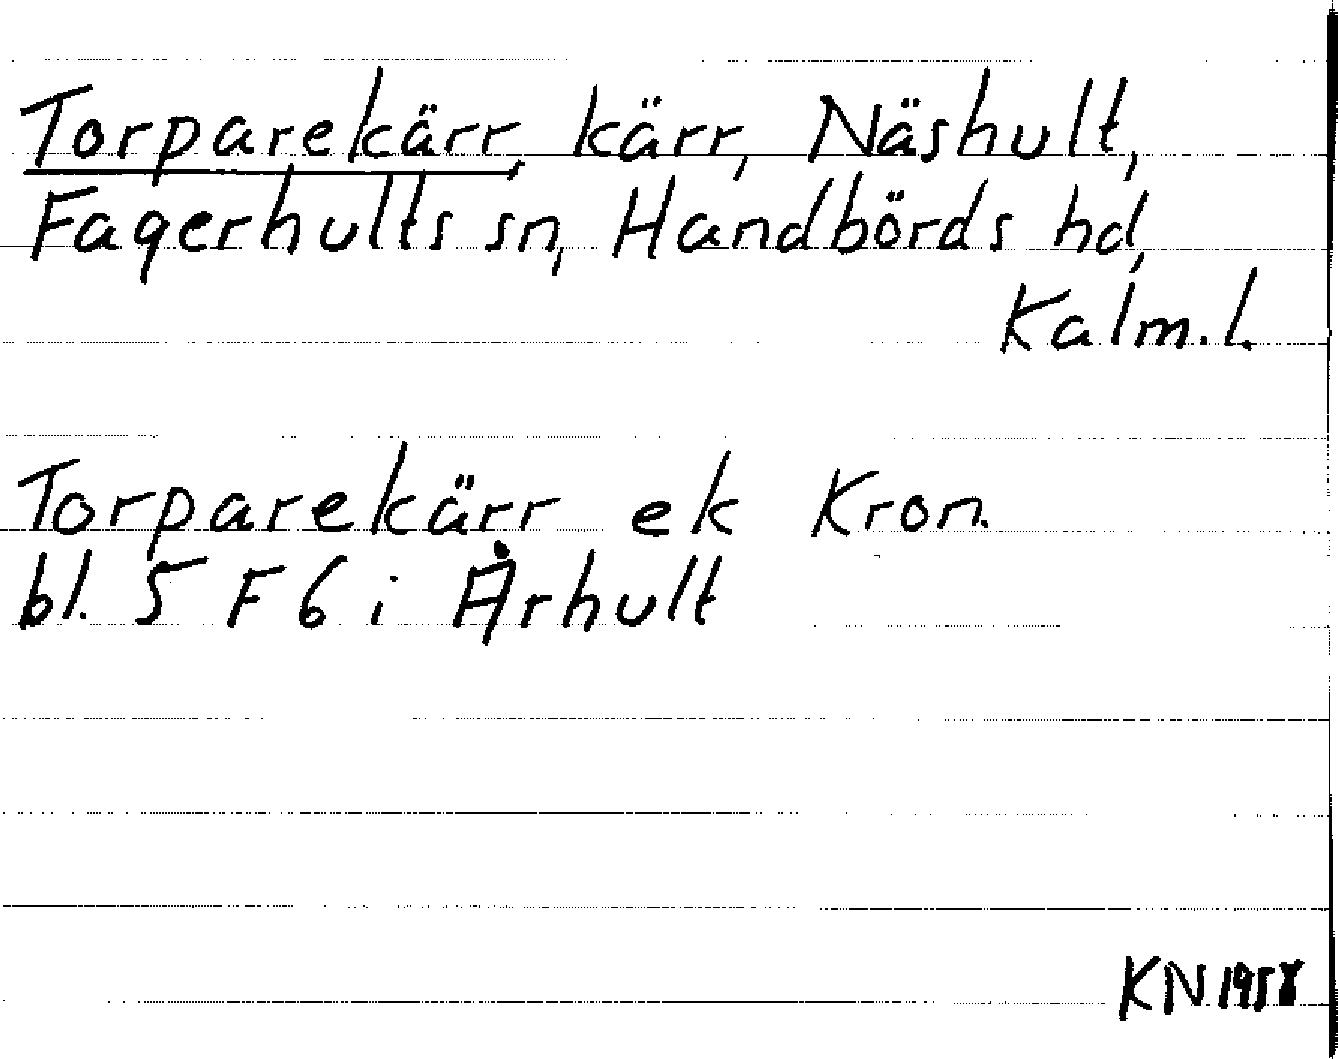 Torparekärr, kärr, Näshult,
Fagerhults sn, Handbörds hd,
Kalm. l.
Torparekärr ek Kron.
bl. 5 F 6 i Århult
KN 1958